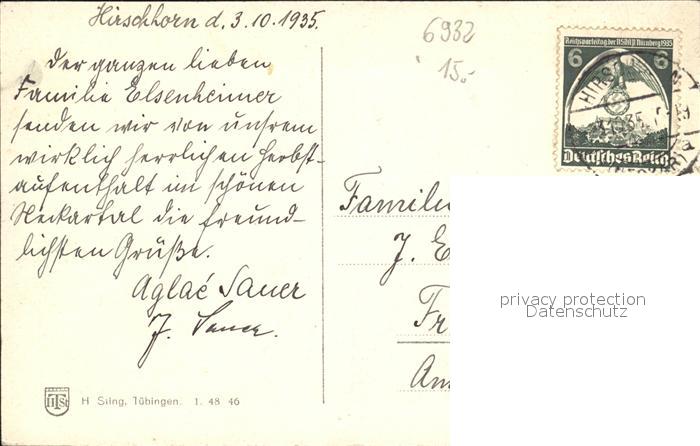 Hirschhorn d. 3.10.1935.
6932
15.-
Der ganzen lieben
Familie Elsenheimer
senden wir von unsrem
wirklich herrlichen Herbst-
aufenthalt im schönen
Neckartal die freund-
lichsten Grüße.
Aglaé Sauer
J. Sauer.
Reichsparteitag der NSDAP Nürnberg 1935
6 6
Deutsches Reich
HIRS
Familie
J. E
Fr
Am
privacy protection
Datenschutz
H Sting, Tübingen. 1. 48 46